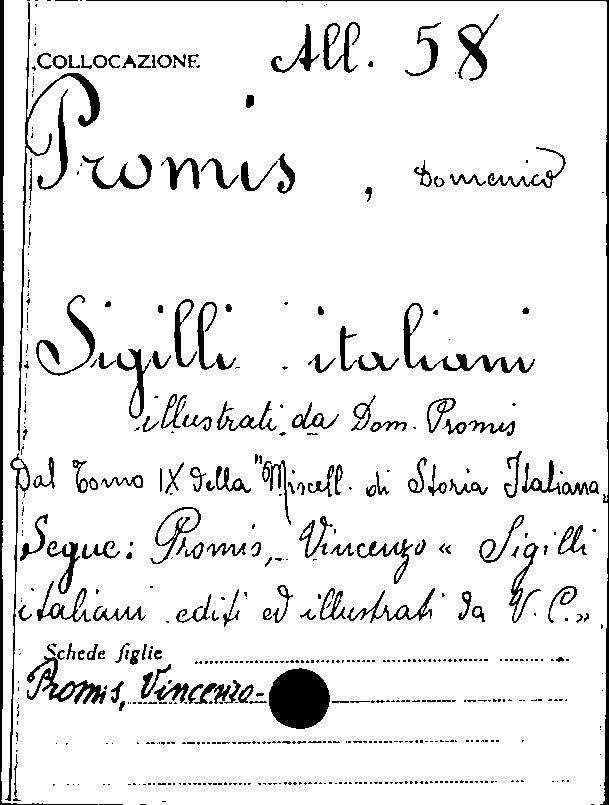 COLLOCAZIONE All. 58
Promis, Domenico
Sigilli italiani
illustrati da Dom. Promis
Dal Tomo IX della "Miscell. di Storia Italiana"
Segue: Promis, Vincenzo « Sigilli
italiani editi ed illustrati da V. C.».
Schede figlie
Promis, Vincenzo-